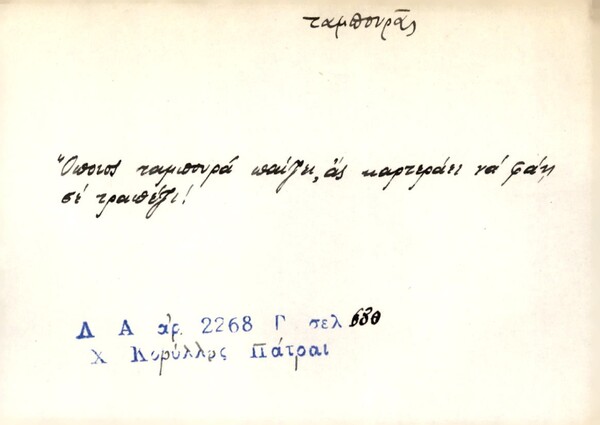 ταμπουρᾶς
Ὅποιος ταμπουρά παίζει, ἄς καρτεράει νά φάῃ
σέ τραπέζι!
Λ Α ἀρ. 2268 Γ σελ 680
Χ Κορύλλος Πάτραι